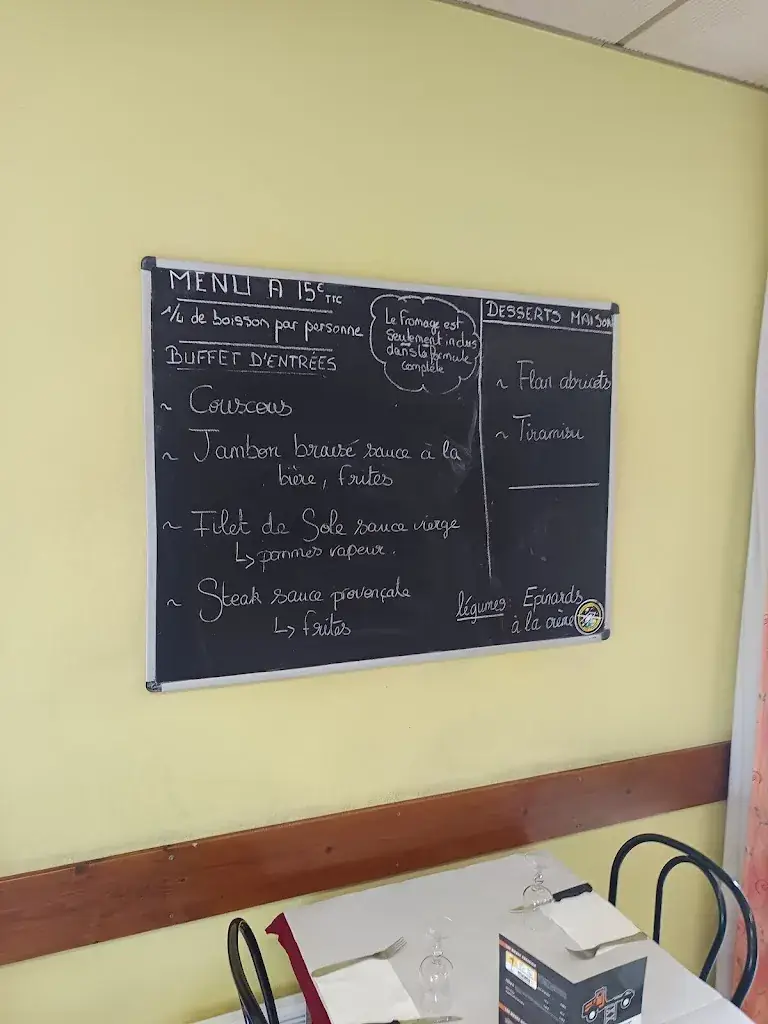 MENU A 15€ TTC
1/4 de boisson par personne
BUFFET D'ENTRÉES
~ Couscous
~ Jambon braisé sauce à la
bière, frites
~ Filet de Sole sauce vierge
↳ pommes vapeur.
~ Steak sauce provençale
↳ frites
Le fromage est
seulement inclus
dans la formule
complète
DESSERTS MAISON
~ Flan abricots
~ Tiramisu
légumes: Epinards
à la crème